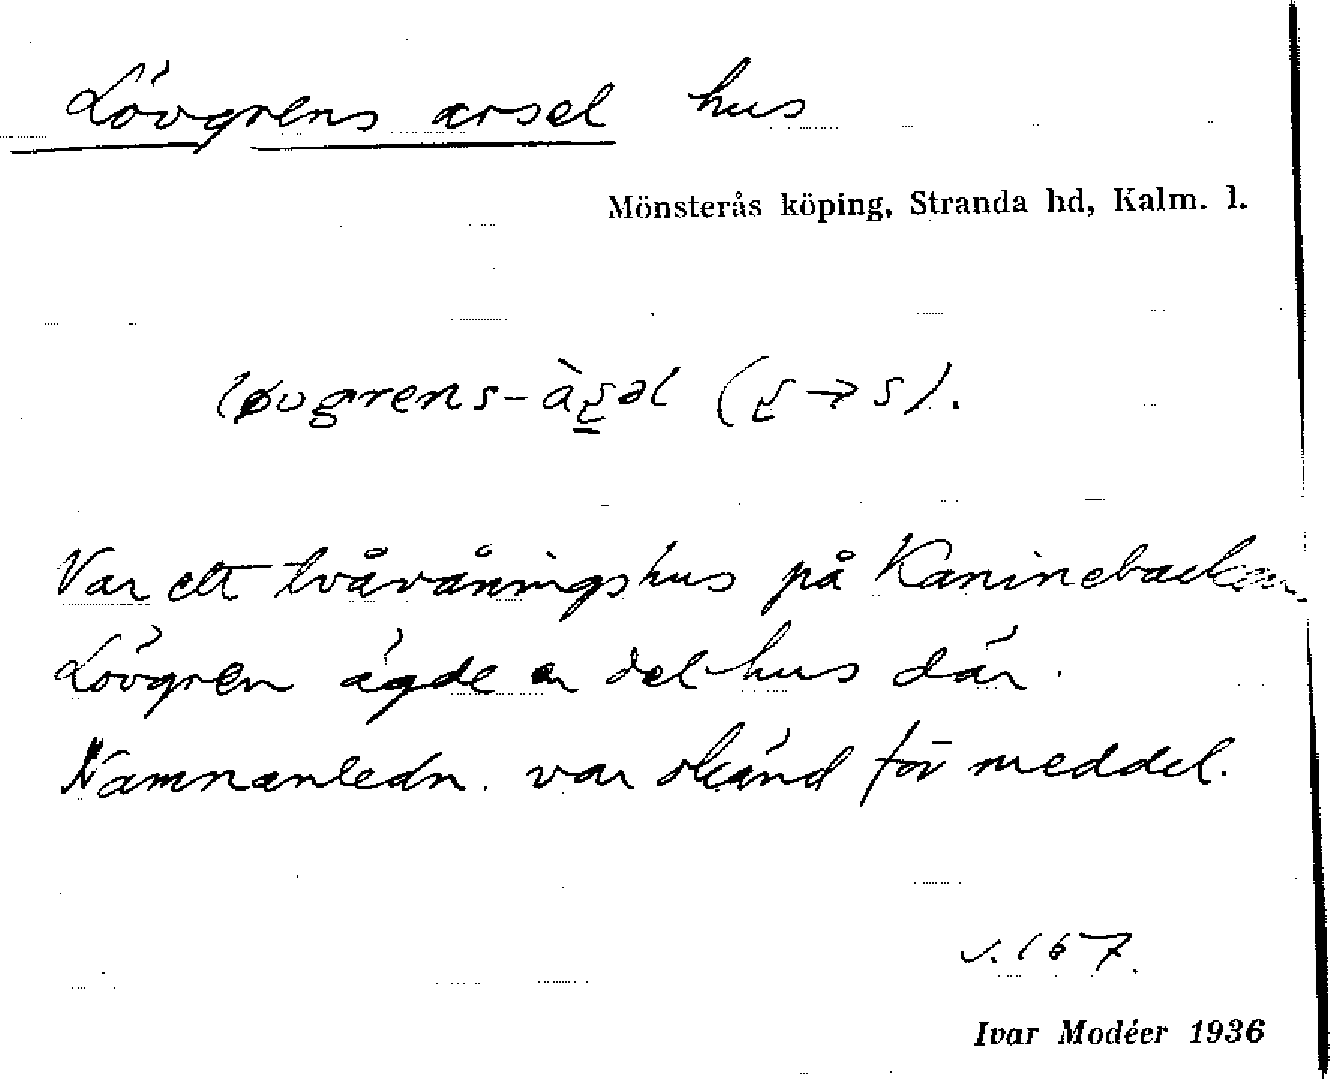 Lövgrens arsel hus
Mönsterås köping, Stranda hd, Kalm. l.
løvgrens-àʂəl (ʂ → s).
Var ett tvåvåningshus på Kaninebacken.
Lövgren ägde en del hus där.
Namnanledn. var okänd för meddel.
s. 167.
Ivar Modéer 1936